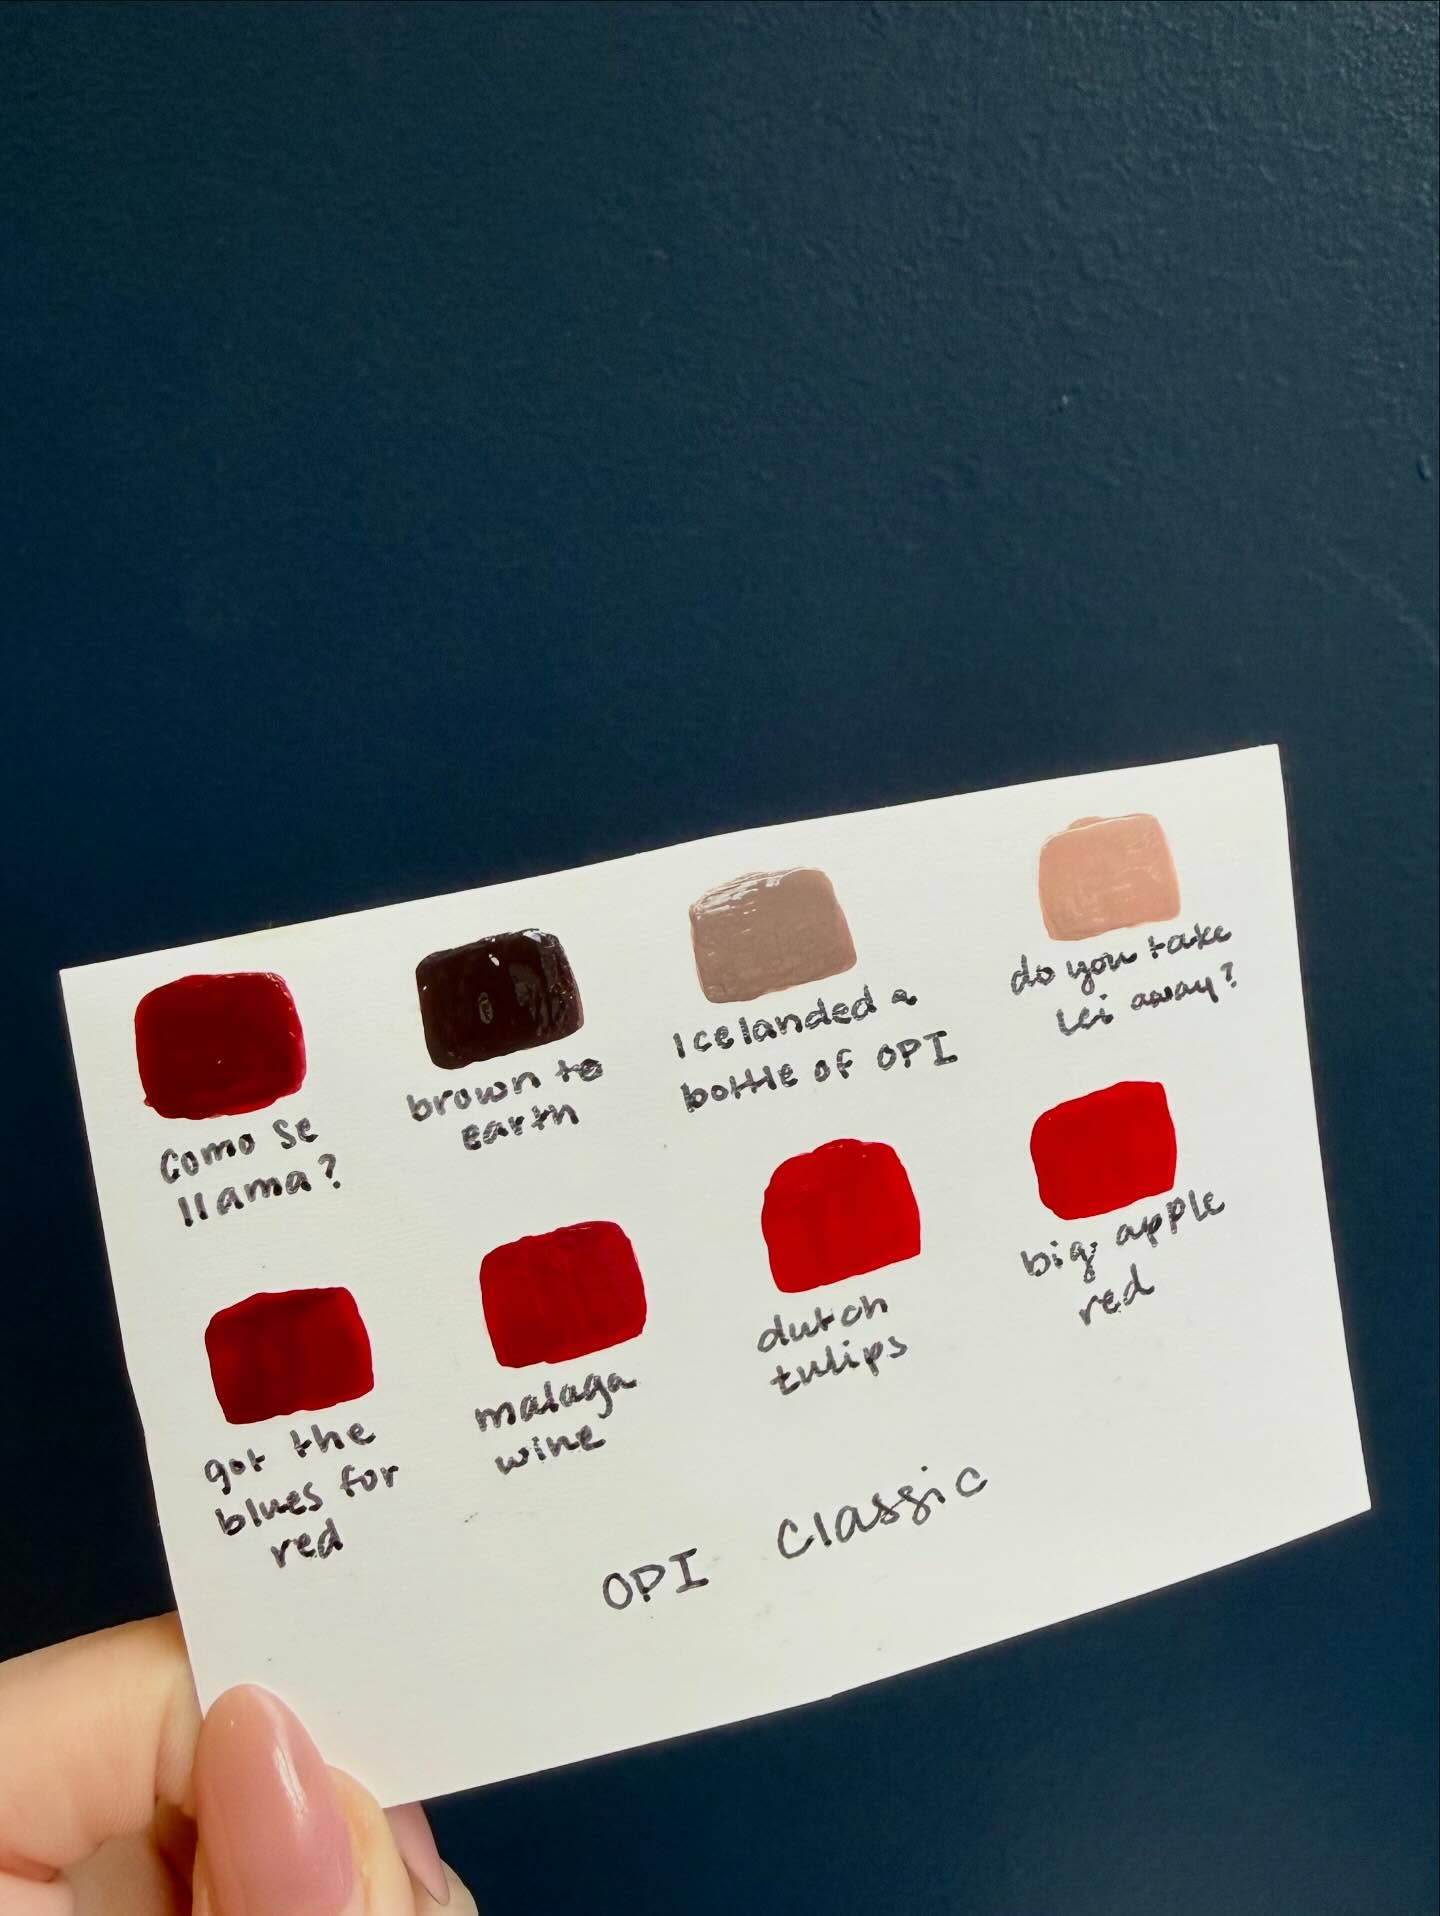 Como se
llama?
brown to
earth
Icelanded a
bottle of OPI
do you take
lei away?
got the
blues for
red
malaga
wine
dutch
tulips
big apple
red
OPI Classic